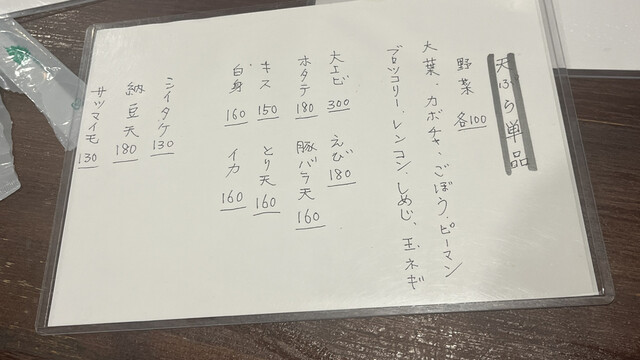 天ぷら単品
野菜 各100
大葉、カボチャ、ごぼう、ピーマン
ブロッコリー、レンコン、しめじ、玉ネギ
大エビ 300 えび 180
ホタテ 180 豚バラ天 160
キス 150 とり天 160
白身 160 イカ 160
シイタケ 130
納豆天 180
サツマイモ 130